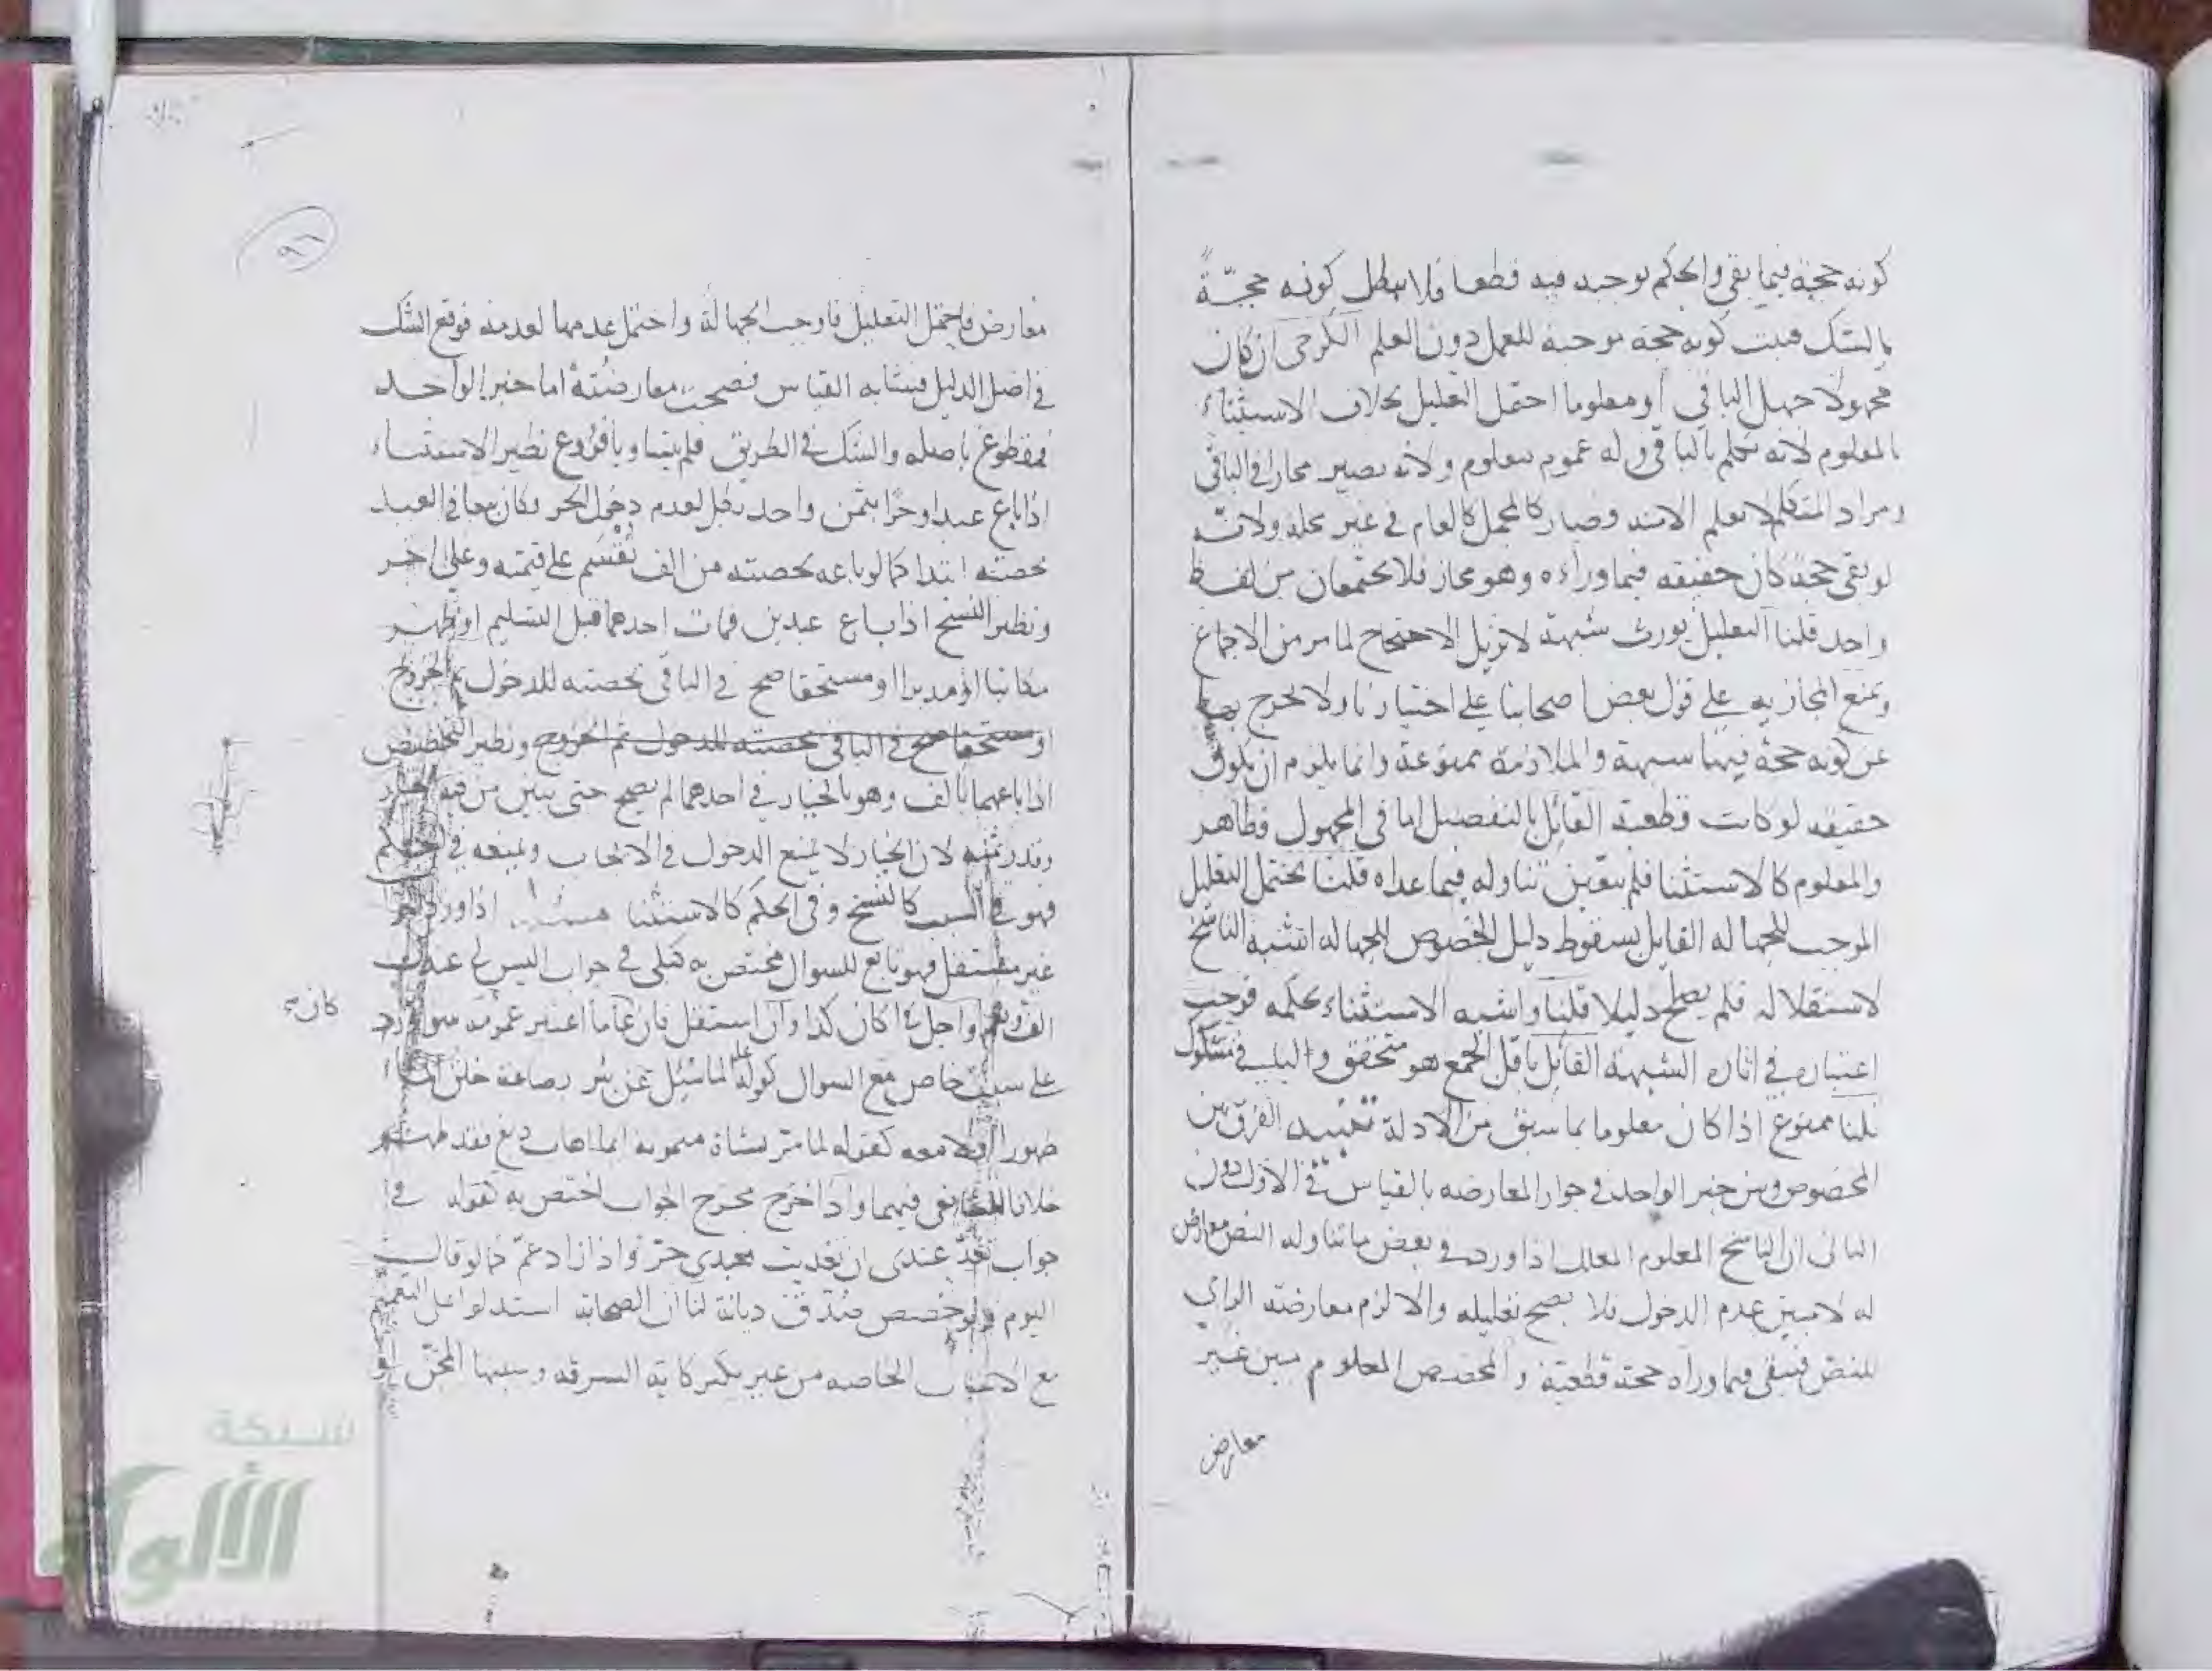 كونه حجة فيما بقي والحكم يوجبه فيه قطعا فلا يبطل كونه حجّةً
بالشك فيبت كونه حجة موجبة للعمل دون العلم الكرخي ان كان
مجهولا جهل الباقي او معلوما احتمل التعليل بخلاف الاستثناء
بالمعلوم لانه تكلم بالباقي وله عموم معلوم ولانه يصير مجازا في الباقي
ومراد المتكلم لا يعلم وصار كالمجمل كالعام في غير محله ولانه
لو بقي حجة كان حقيقه فيما وراءه وهو مجاز فلا يجتمعان من لفظ
واحد قلنا التعليل يورث شبهة لا تزيل الاحتجاج لما مر من الاجماع
ونمنع المجازيه على قول بعض اصحابنا على اختيارنا ولا يخرج
عن كونه حجة فيها شبهة والملازمة ممنوعة وانما يلزم ان يكون
حقيقه لو كانت قطعية القائل بالتفصيل اما في المجهول فظاهر
والمعلوم كالاستثنا فلم يتعين تناوله فيما عداه قلنا يحتمل التعليل
الموجب للجهاله القايل بسقوط دليل الخصوص للجهاله اشبه الناسخ
لاستقلاله فلم يصلح دليلا قلنا واشبه الاستثناء بحكمه فوجب
اعتباره في اثارة الشبهة القائل باقل الجمع هو متحقق والباقي مشكوك
قلنا ممنوع اذا كان معلوما بما سبق من الادلة تنبيه الفرق بين
المخصوص وبين خبر الواحد في جواز المعارضه بالقياس في الاول دون
الثاني ان الناسخ المعلوم المعلل اذا ورد في بعض ما تناوله النص معارض
له لا مبين عدم الدخول فلا يصح تعليله والا لزم معارضته الراي
للنص فيبقى فيما وراه حجة قطعية والمخصص المعلوم مبين غير
معارض
معارض فاحتمل التعليل فاوجب الجهالة واحتمل عدمها لعدمه فوقع الشك
في اصل الدليل فشابه القياس فصحت معارضته اما خبر الواحد
فمقطوع باصله والشك في الطريق فلم يتساويا فروع نظير الاستثناء
اذا باع عبدا وحرا بثمن واحد بطل لعدم دخول الحر وكان في العبد
بحصته ابتدا كما لو باعه بحصته من الف تقسم على قيمته وعلى اخر
ونظير النسخ اذا باع عبدين فمات احدهما قبل التسليم او ظهر
مكاتبا او مدبرا او مستحقا صح في الباقي بحصته للدخول ثم الخروج
او مستحقا صح في الباقي بحصته للدخول ثم الخروج ونظير التخصيص
اذا باعهما بالف وهو بالخيار في احدهما لم يصح حتى يتبين من فيه الخيار
وقدر ثمنه لان الخيار لا يمنع الدخول في الايجاب ويمنعه في الحكم
فهو في السبب كالنسخ وفي الحكم كالاستثنا اذا ورد
غير مستقل فهو تابع للسوال مختص به كبلى في جواب اليس لي عندك
الف ونعم واجل كان كذا وان استقل فان عاما اعتبر عمومه
كان
على سبب خاص مع السوال كقوله لما سئل عن بئر بضاعة خلق الماء
طهورا اولا معه كقوله لما مر بشاة ميمونة ايما اهاب دبغ فقد طهر
خلافا للشافعي فيهما واذا خرج مخرج الجواب اختص به كقوله في
جواب تغد عندي ان تغديت فعبدي حر واذا زاد عمّ كما لو قال
اليوم ولو خصص صدق ديانة لنا ان الصحابة استدلوا على التعميم
مع الاسباب الخاصه من غير نكير كاية السرقه وسببها المجن او
شبكة
الألوكة